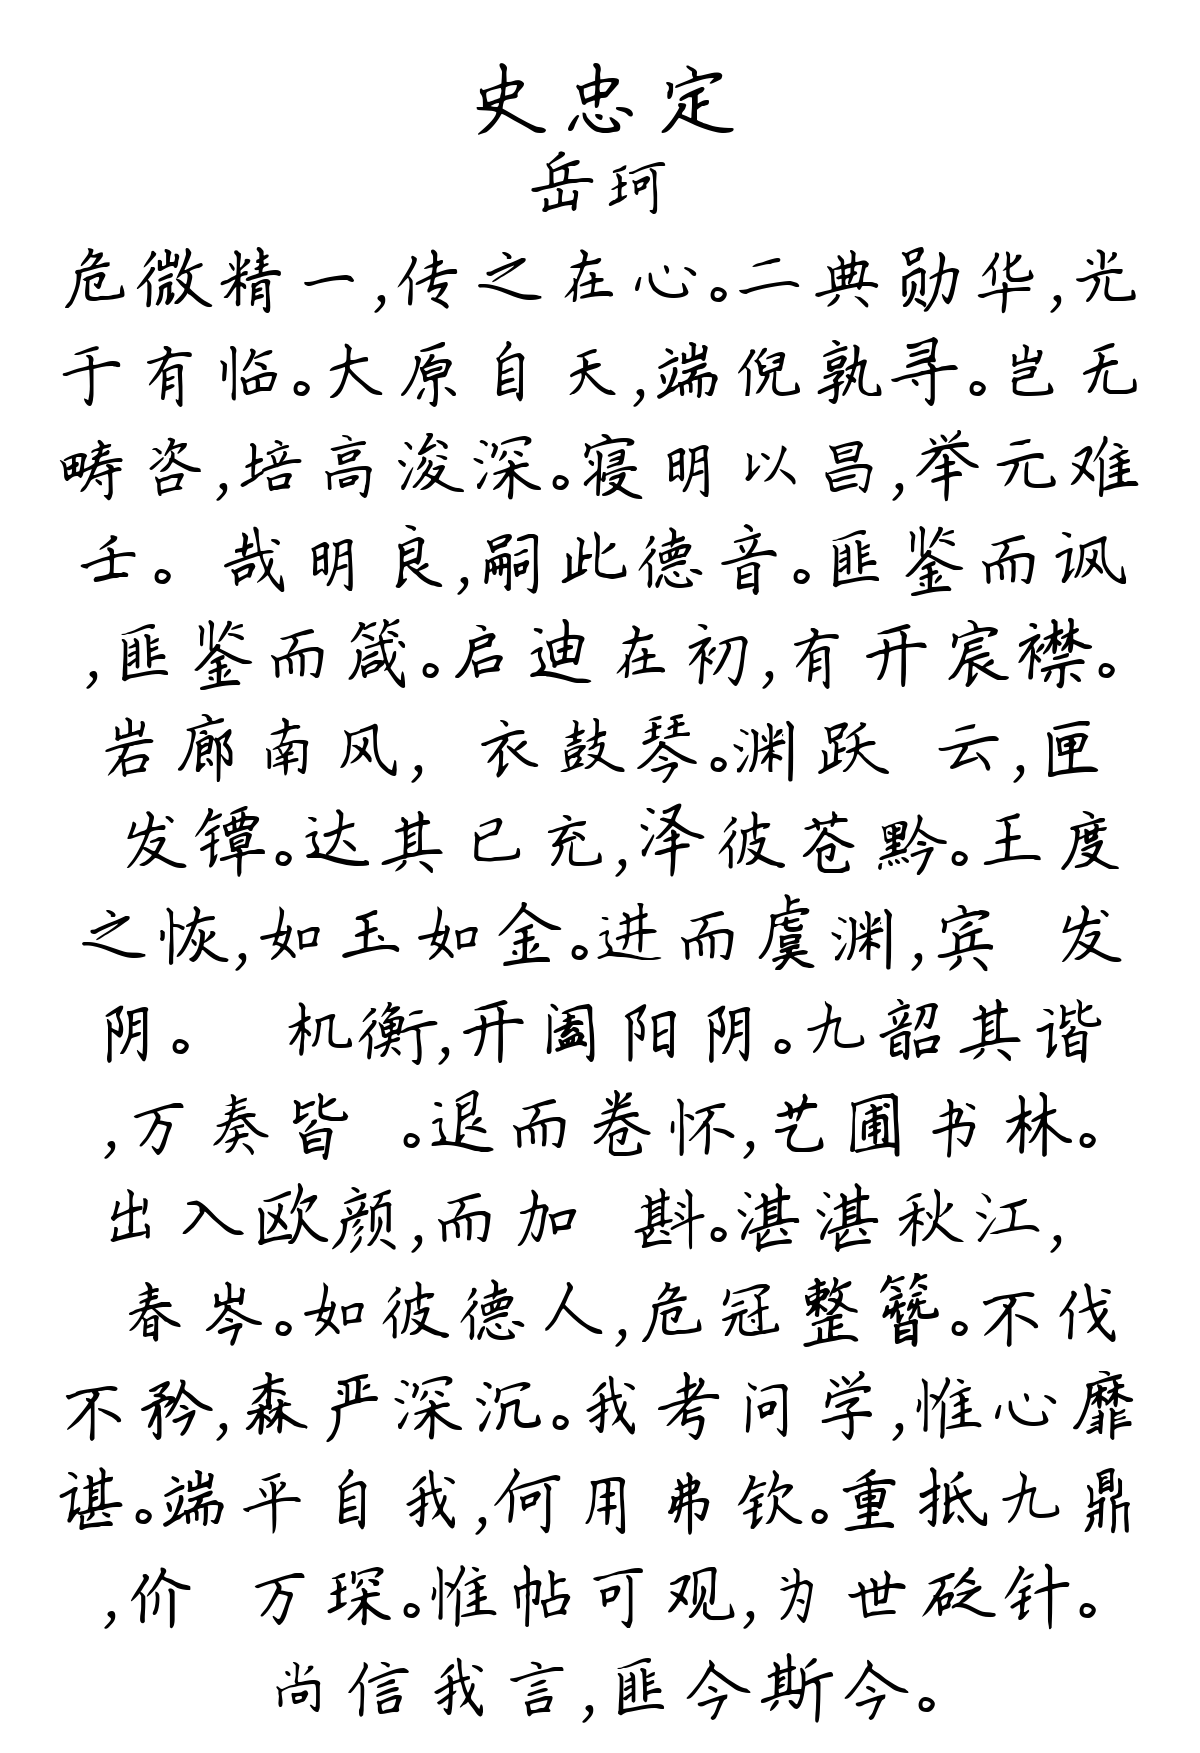 史忠定
岳珂
危微精一,传之在心。二典勋华,光
于有临。大原自天,端倪孰寻。岂无
畴咨,培高浚深。寝明以昌,举元难
壬。 哉明良,嗣此德音。匪鉴而讽
,匪鉴而箴。启迪在初,有开宸襟。
岩廊南风, 衣鼓琴。渊跃 云,匣
发镡。达其已充,泽彼苍黔。王度
之恢,如玉如金。进而虞渊,宾 发
阴。 机衡,开阖阳阴。九韶其谐
,万奏皆 。退而卷怀,艺圃书林。
出入欧颜,而加 斟。湛湛秋江,
春岑。如彼德人,危冠整簪。不伐
不矜,森严深沉。我考问学,惟心靡
谌。端平自我,何用弗钦。重抵九鼎
,价 万琛。惟帖可观,为世砭针。
尚信我言,匪今斯今。